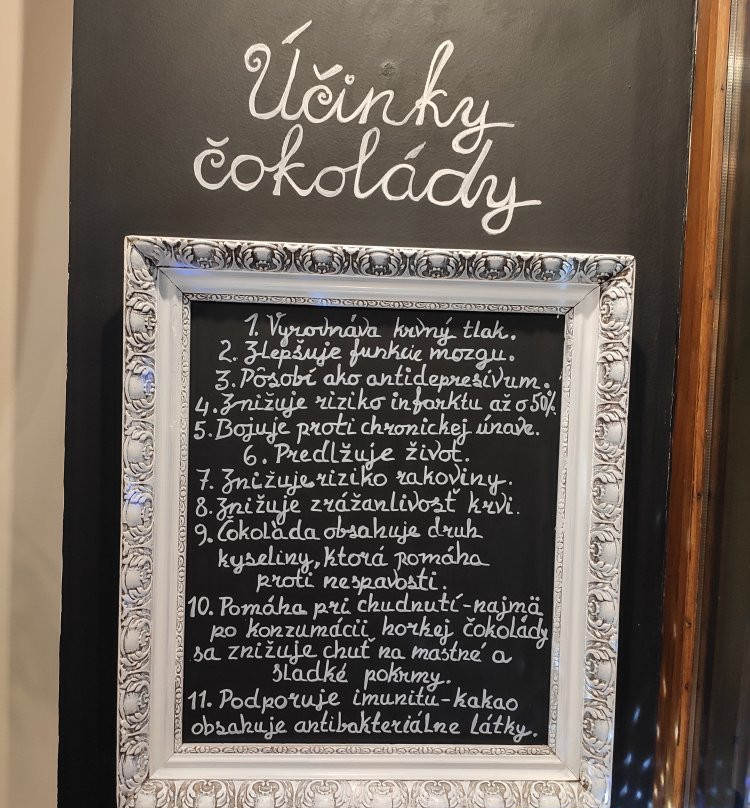 Účinky
čokolády
1. Vyrovnáva krvný tlak.
2. Zlepšuje funkcie mozgu.
3. Pôsobí ako antidepresívum.
4. Znižuje riziko infarktu až o 50%.
5. Bojuje proti chronickej únave.
6. Predlžuje život.
7. Znižuje riziko rakoviny.
8. Znižuje zrážanlivosť krvi.
9. Čokoláda obsahuje druh
kyseliny, ktorá pomáha
proti nespavosti.
10. Pomáha pri chudnutí-najmä
po konzumácii horkej čokolády
sa znižuje chuť na mastné a
sladké pokrmy.
11. Podporuje imunitu-kakao
obsahuje antibakteriálne látky.